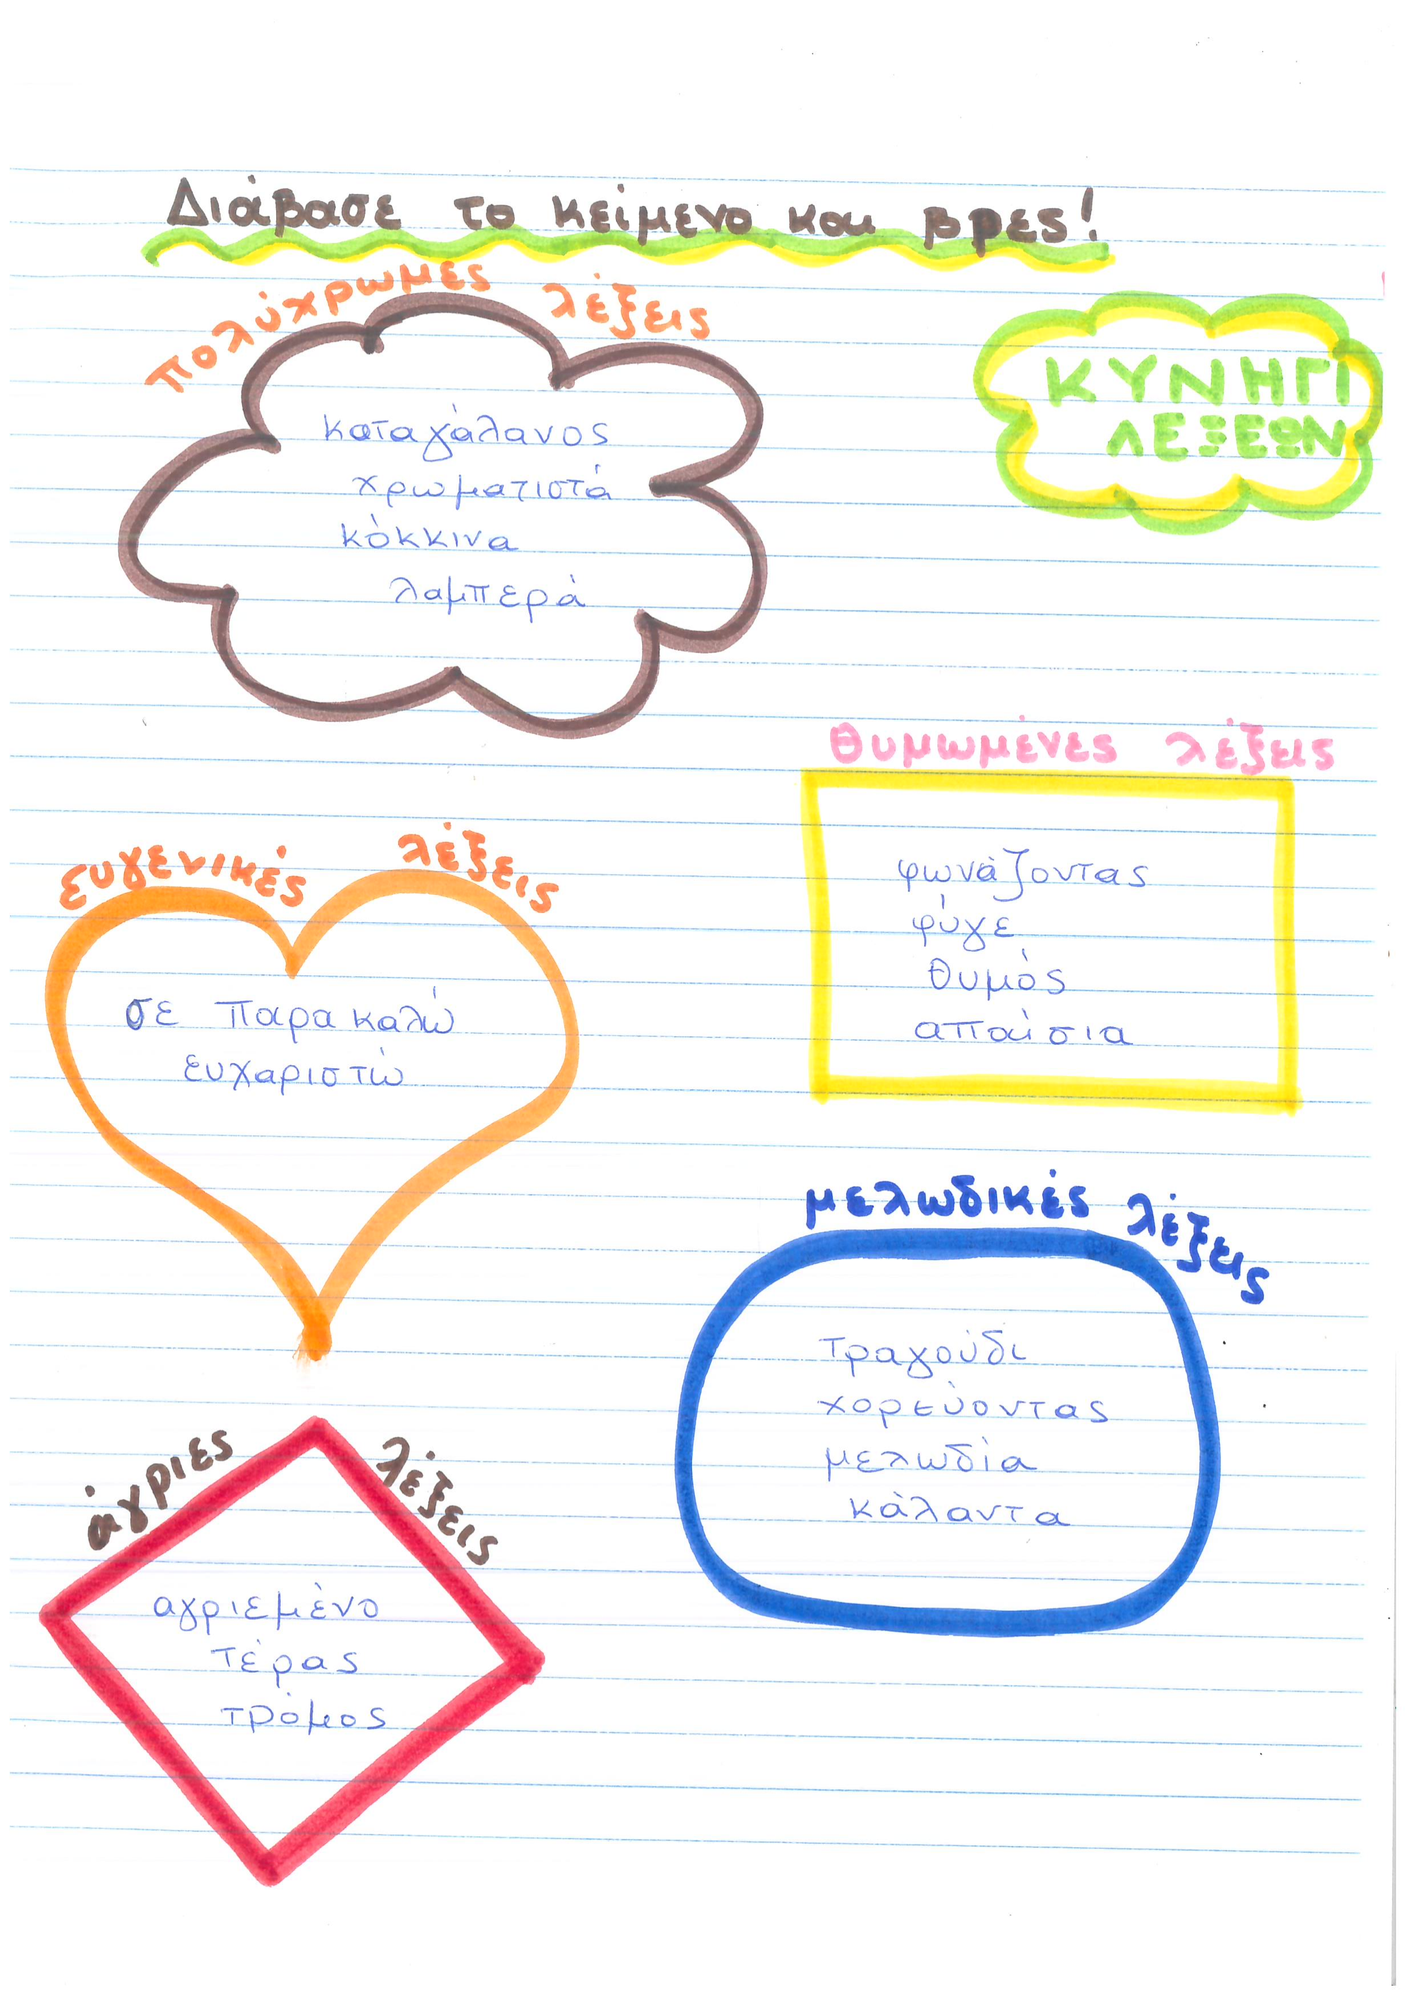 Διάβασε το κείμενο και βρες!
πολύχρωμες λέξεις
καταγάλανος
χρωματιστά
κόκκινα
λαμπερά
ΚΥΝΗΓΙ
ΛΕΞΕΩΝ
θυμωμένες λέξεις
φωνάζοντας
φύγε
θυμός
απαίσια
ευγενικές λέξεις
σε παρακαλώ
ευχαριστώ
μελωδικές λέξεις
τραγούδι
χορεύοντας
μελωδία
κάλαντα
άγριες λέξεις
αγριεμένο
τέρας
τρόμος